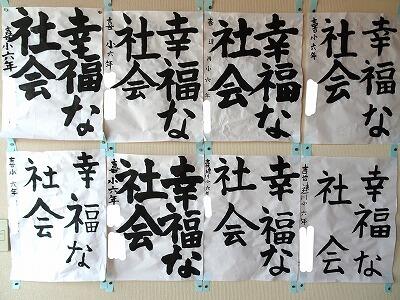 幸福な
社会
喜小六年
幸福な
社会
喜小六年
幸福な
社会
小六年
幸福な
社会
喜小六年
幸福な
社会
喜小六年
幸福な
社会
喜小六年
幸福な
社会
六年
幸福な
社会
小六年